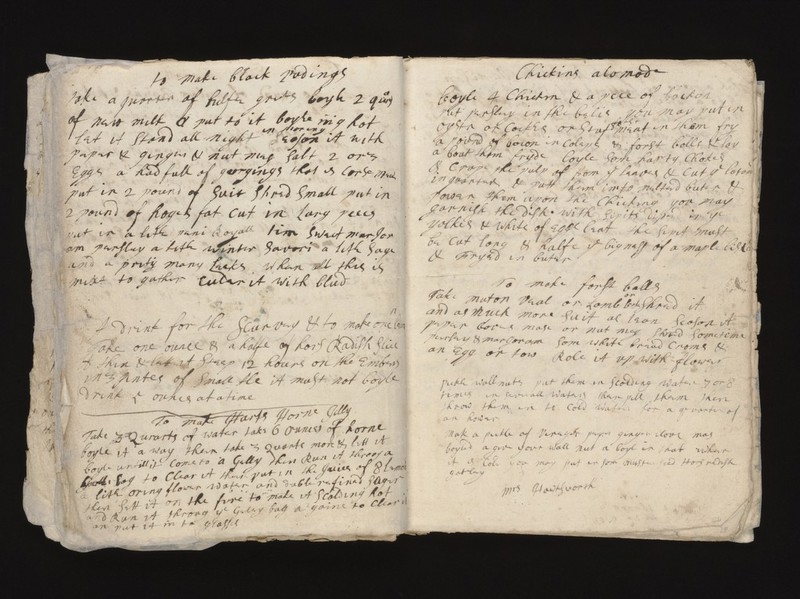 to make black pudings
take a quarter of hulfe grets boyle 2 qurs
of new milk & put to it boyleing hot
let it stand all night in moring season it with
papar & ginger & nut meg salt 2 or 3
Eggs a hadfull of that is corse meal
put in 2 pound of suit shrid small put in
2 pound of hoges fat cut in larg peces
put in a litle peni Royall tim sweat marjor
am parsley a litle winter savori a litle sage
and a prety many leeks when all this is
mixt to gather culer it with blud
A drink for the Scurvey & to make one lean
Take one ounce & a halfe of hors Radish slice
it thin & let it steep 12 hours on the Embers
in 3 pintes of small Ale it must not boyle
drink 5 ounces at a time
To make Harts Horne Gilly
Take 3 Quarts of water take 6 ounces of horne
boyle it a way then take 2 quarts more & lett it
boyle untill it come to a Gilly then Run it throug a
bag to Clear it then put in the Juice of 8 lemons
a litle oring flower water and duble refined suger
then sett it on the fire to make it scolding hot
and Run it throug ye Gilly bag a gaine to Clear it
an put it in to glasses
Chickins alomode
boyle 4 Chicken & a peece of bacon
put parsley in the belis you may put in
oyster or Cockls or stufment in them fry
a pound of bacon in Colops & forst balls & lay
a bout them fryde boyle som harty Chokes
& Crape the pulp of from ye leaves & Cut ye botom
in quarters & put them into milted buter &
power them upon the Chicking you may
garnish the dish with sipits dipt in ye
yolkes & white of Eggs beat the sipit must
be cut long & halfe ye bigness of a
& fryed in buter
To make forst balls
Take muton veal or lamb or shred it
and as much more suit as lean season it
peper cloves mase or nut meg shred sometime
parsley & marjoram som white bread Croms &
an Egg or tow Role it up with flower
wallnuts put them in scolding water 7 or 8
times in severall waters then pill them then
throw them in to Cold water for a quarter of
an houer
mak a pickle of vinegar peper ginger clove mas
boyled a gen your wall nut & boyle in that when
it is Cold you may put in som musterd and Horsredish
eat
mrs Hauthworth